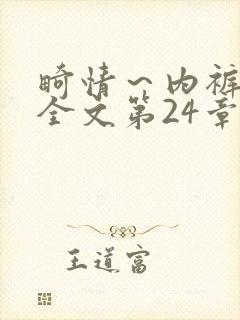 畸情～内裤
全文第24章
王道富